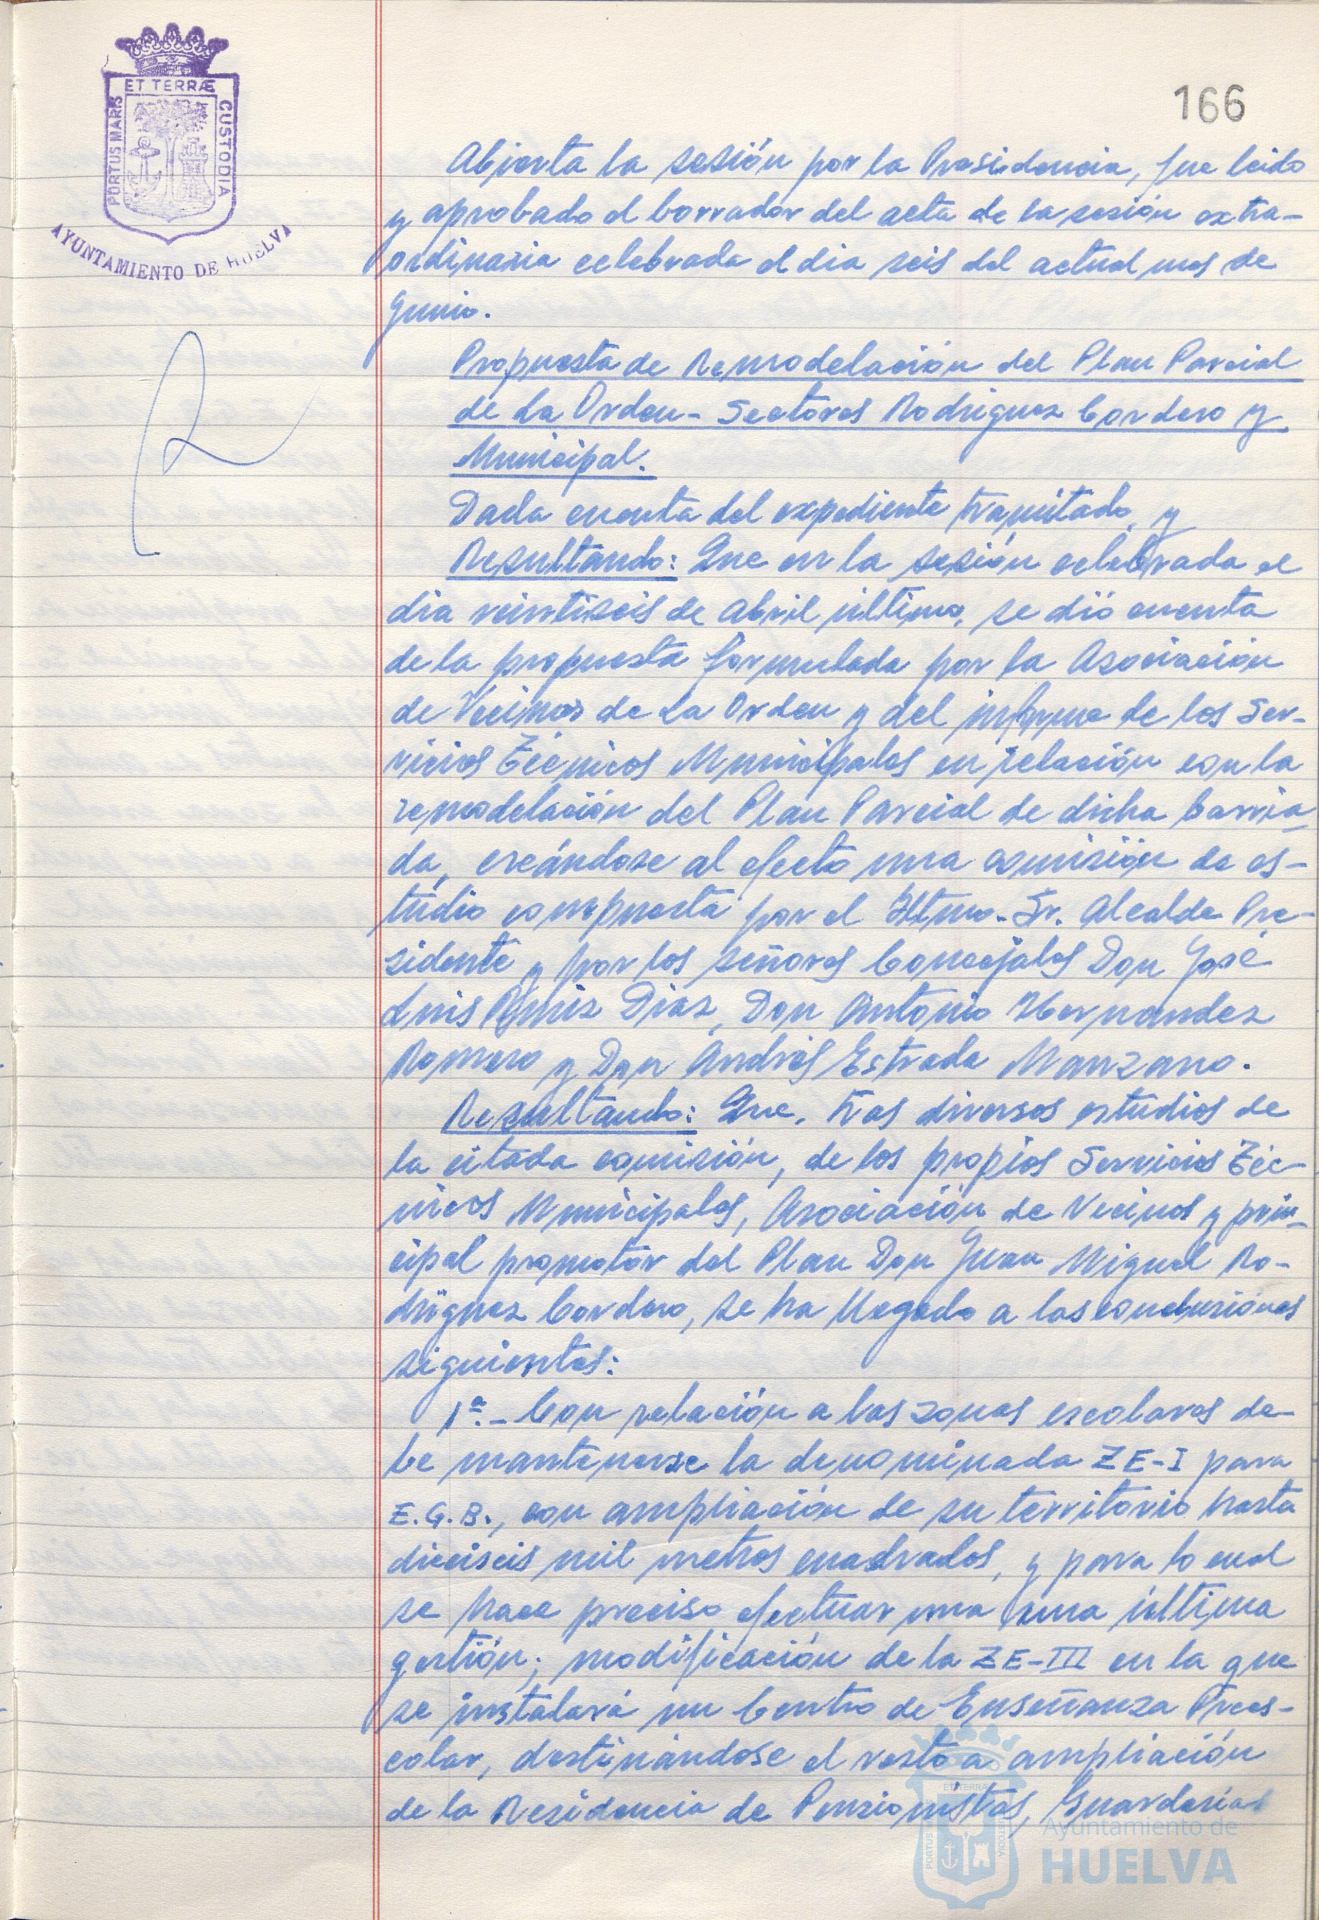 ET TERRÆ
PORTUS MARIS
CUSTODIA
AYUNTAMIENTO DE HUELVA
166
Abierta la sesión por la Presidencia, fue leido
y aprobado el borrador del acta de la sesión extra-
ordinaria celebrada el dia seis del actual mes de
Junio.
Propuesta de Remodelación del Plan Parcial
de La Orden - Sectores Rodriguez Cordero y
Municipal.
Dada cuenta del expediente tramitado, y
Resultando: Que en la sesión celebrada el
dia veintiseis de Abril último, se dió cuenta
de la propuesta formulada por la Asociación
de Vecinos de La Orden y del informe de los Ser-
vicios Técnicos Municipales en relación con la
remodelación del Plan Parcial de dicha barria-
da, creándose al efecto una comisión de es-
tudio compuesta por el Iltmo. Sr. Alcalde Pre-
sidente y por los señores Concejales Don José
Luis Ruiz Diaz, Don Antonio Hernandez
Romero y Don Andrés Estrada Manzano.
Resultando: Que, tras diversos estudios de
la citada comisión, de los propios Servicios Téc-
nicos Municipales, Asociación de Vecinos y prin-
cipal promotor del Plan Don Juan Miguel Ro-
driguez Cordero, se ha llegado a las conclusiones
siguientes:
1ª.- Con relación a las zonas escolares de-
be mantenerse la denominada ZE-I para
E.G.B., con ampliación de su territorio hasta
dieciseis mil metros cuadrados, y para lo cual
se hace preciso efectuar una una última
gestión; modificación de la ZE-III en la que
se instalará un Centro de Enseñanza Prees-
colar, destinándose el resto a ampliación
de la Residencia de Pensionistas, Guarderias
Ayuntamiento de
HUELVA